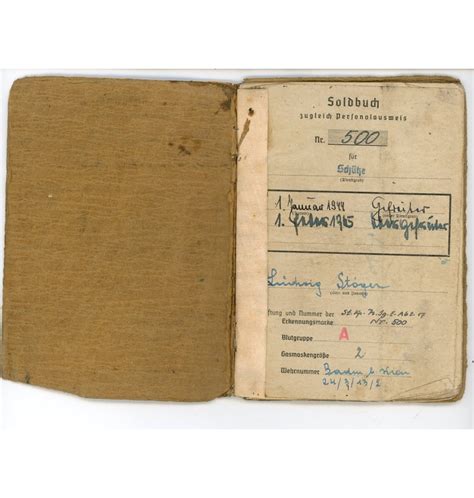 Soldbuch
zugleich Personalausweis
Nr. 500
für
Schütze
(Dienstgrad)
1. Januar 1944 Gefreiter
1. 1945
Ludwig Stöger
(Vor- und Zuname)
und Nummer der
Erkennungsmarke Nr. 500
Blutgruppe A
Gasmaskengröße 2
Wehrnummer Baden b. Wien